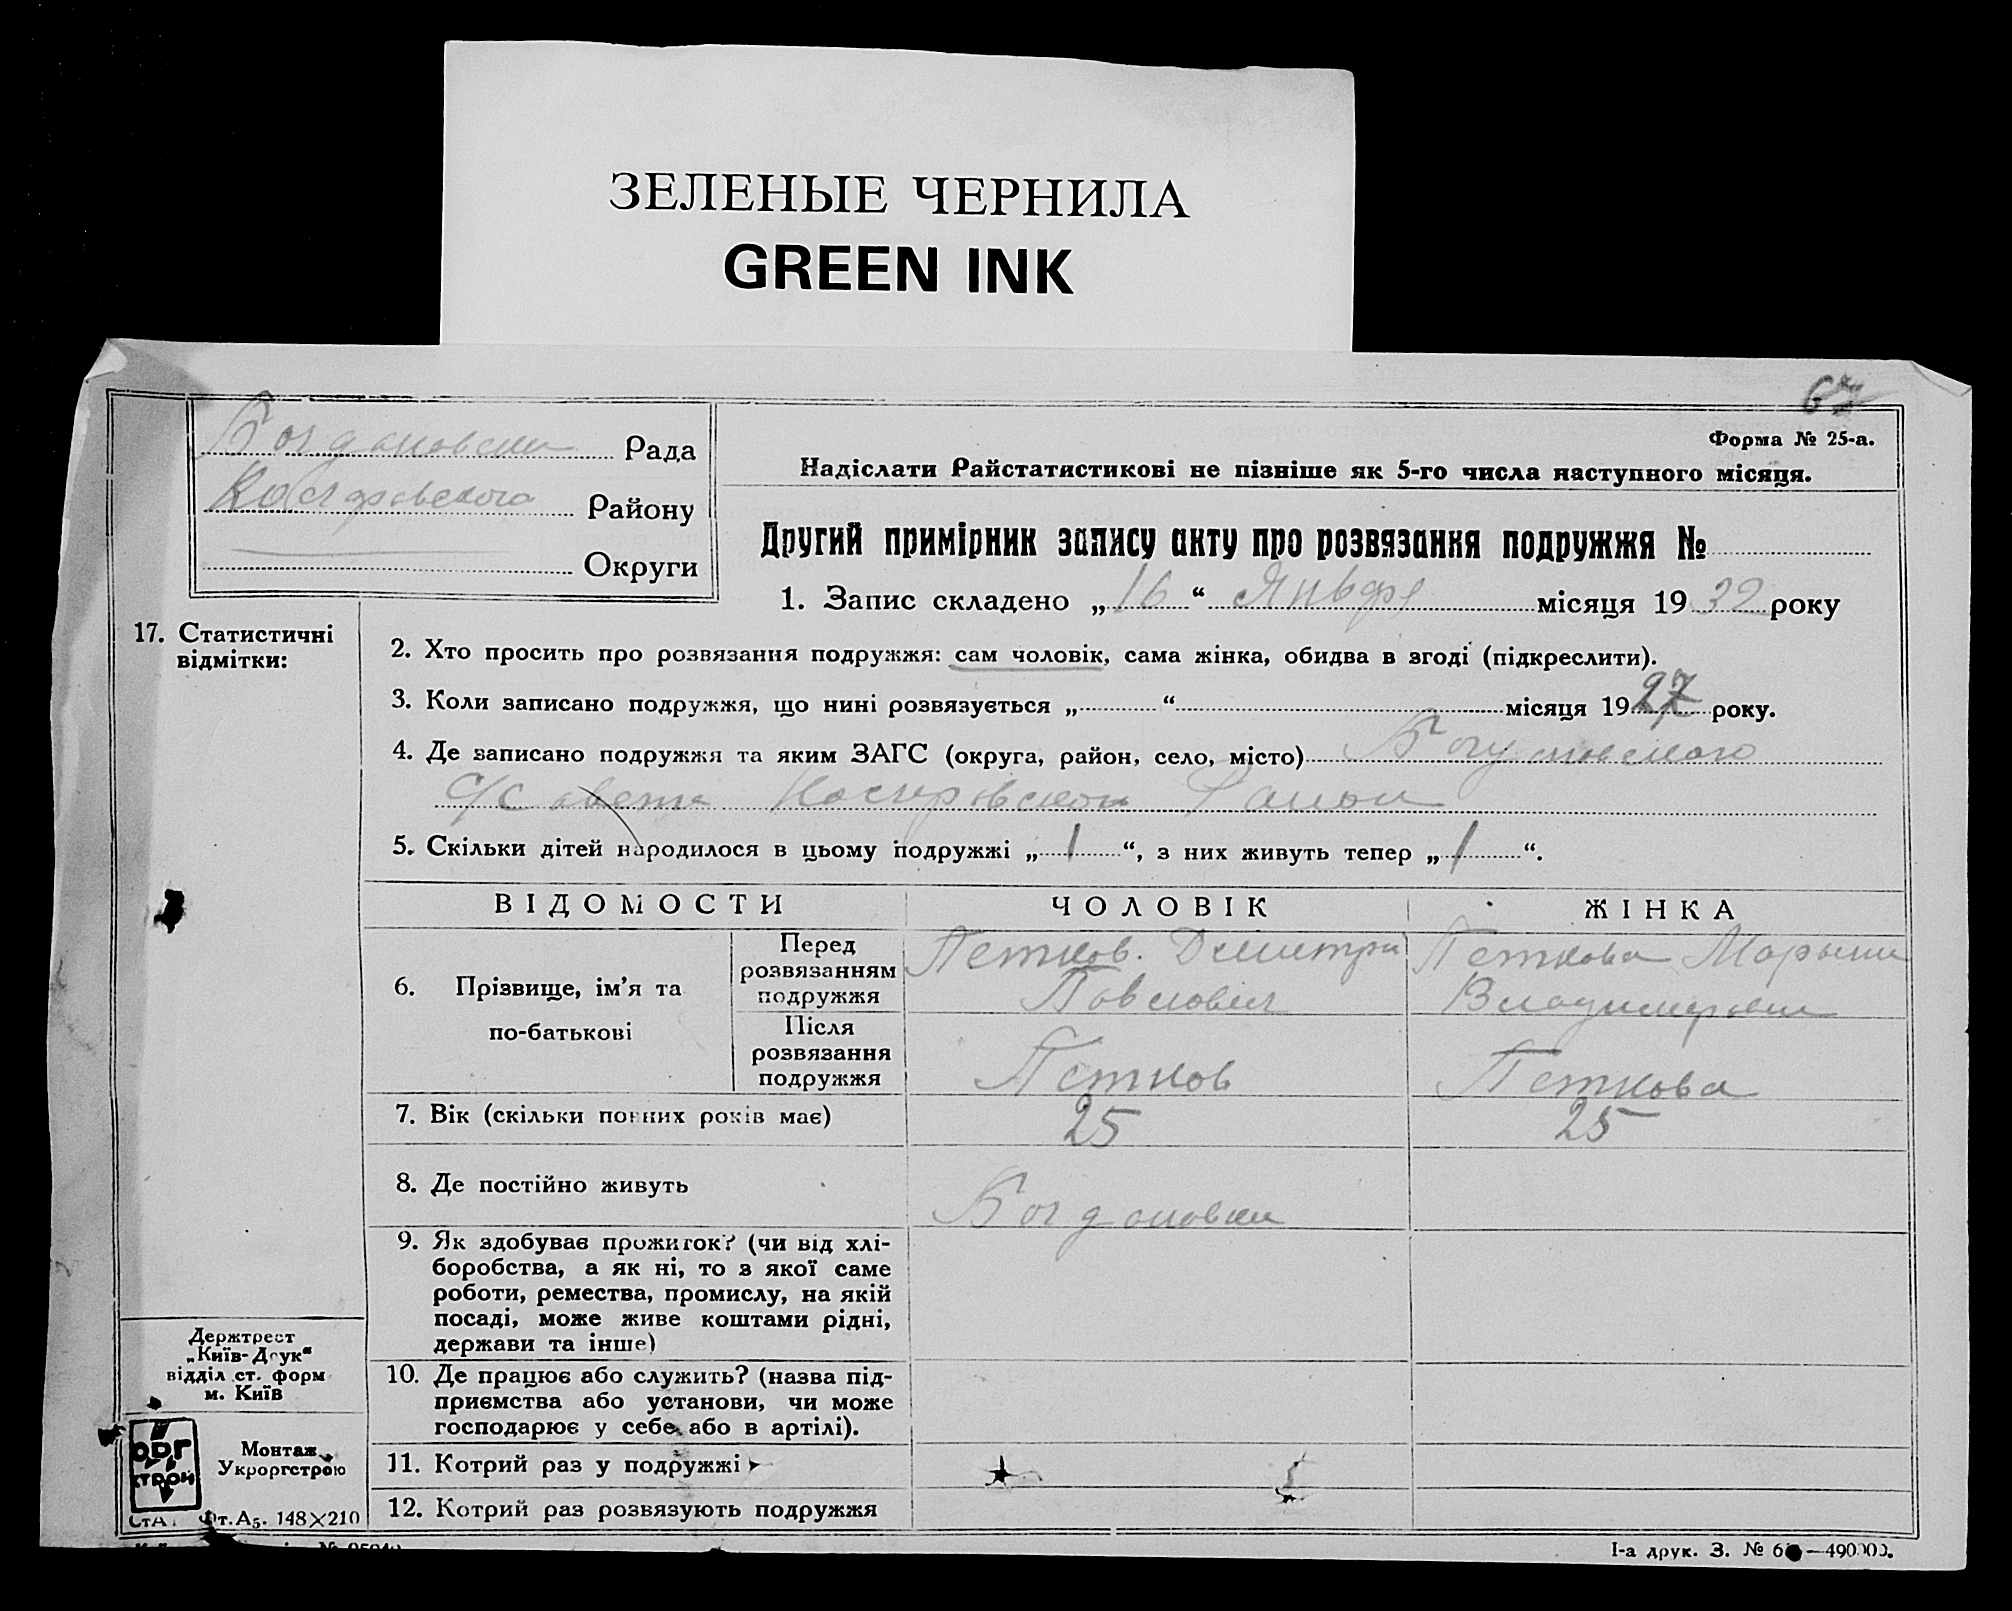 ЗЕЛЕНЫЕ ЧЕРНИЛА
GREEN INK
Рада
Району
Округи
Форма № 25-а.
Надіслати Райстатистикові не пізніше як 5-го числа наступного місяця.
Другий примірник запису акту про розвязання подружжя №
1. Запис складено „16“ Январе місяця 19 32 року
17. Статистичні
відмітки:
2. Хто просить про розвязання подружжя: сам чоловік, сама жінка, обидва в згоді (підкреслити).
3. Коли записано подружжя, що нині розвязується „ “ місяця 19 27 року.
4. Де записано подружжя та яким ЗАГС (округа, район, село, місто)
5. Скільки дітей народилося в цьому подружжі „1“, з них живуть тепер „1“.
ВІДОМОСТИ ЧОЛОВІК ЖІНКА
6. Прізвище, ім’я та
по-батькові
Перед
розвязанням
подружжя
Петков Дмитри
Павлович
Петкова
Владимировна
Після
розвязання
подружжя
Петков
Петкова
7. Вік (скільки повних років має) 25 25
8. Де постійно живуть
9. Як здобуває прожиток? (чи від хлі-
боробства, а як ні, то з якої саме
роботи, ремества, промислу, на якій
посаді, може живе коштами рідні,
держави та інше)
10. Де працює або служить? (назва під-
приємства або установи, чи може
господарює у себе або в артілі).
11. Котрий раз у подружжі
12. Котрий раз розвязують подружжя
Держтрест
„Київ-Друк“
відділ ст. форм
м. Київ
ОРГ
СТРОЙ
Монтаж
Укроргстрою
Фт. А5. 148×210
І-а друк. З. №